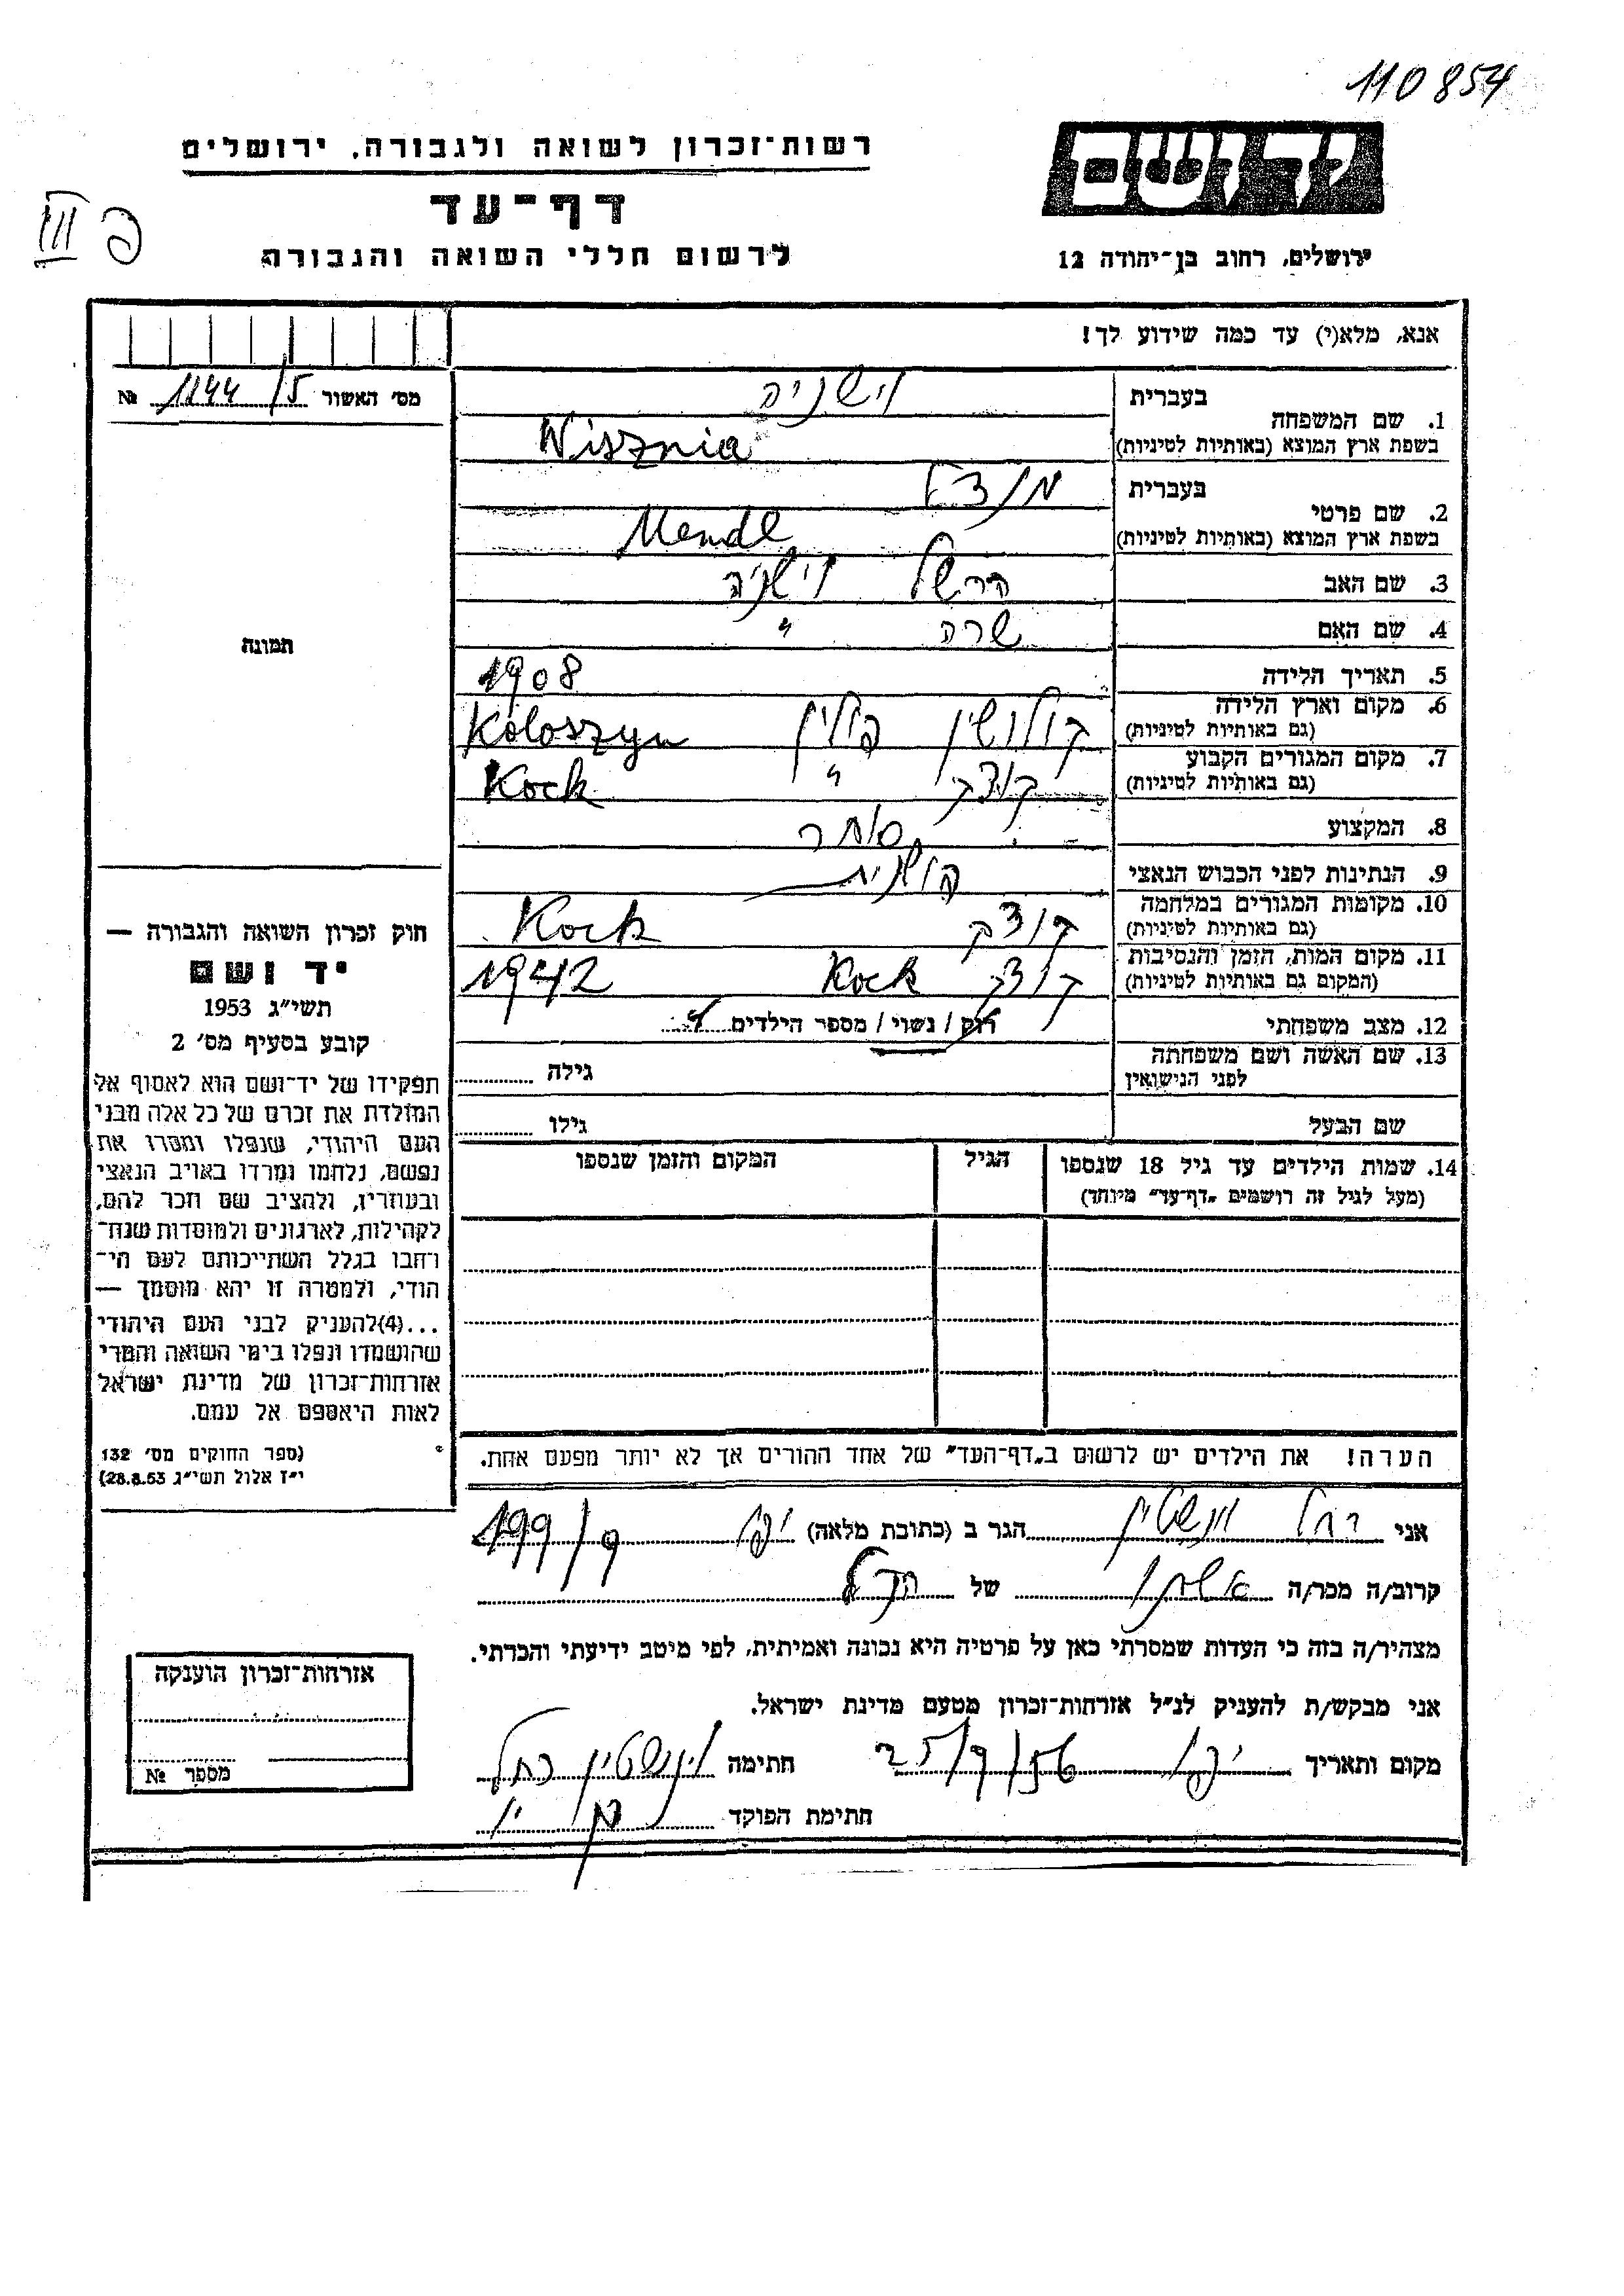 110854
רשות־זכרון לשואה ולגבורה, ירושלים
דף־עד
לרשום חללי השואה והגבורה
יד ושם
ירושלים, רחוב בן־יהודה 12
III
אנא, מלא(י) עד כמה שידוע לך!
מס׳ האשור 1144/5 №
תמונה
בעברית וישניה
1. שם המשפחה
בשפת ארץ המוצא (באותיות לטיניות) Wisznia
בעברית מנדל
2. שם פרטי
בשפת ארץ המוצא (באותיות לטיניות) Mendl
3. שם האב הרשל וישניה
4. שם האם שרה "
5. תאריך הלידה 1908
6. מקום וארץ הלידה קולושין פולין Koloszyn
(גם באותיות לטיניות)
7. מקום המגורים הקבוע קוצק " Kock
(גם באותיות לטיניות)
8. המקצוע סוחר
9. הנתינות לפני הכבוש הנאצי פולנית
10. מקומות המגורים במלחמה קוצק Kock
(גם באותיות לטיניות)
11. מקום המות, הזמן והנסיבות קוצק Kock 1942
(המקום גם באותיות לטיניות)
12. מצב משפחתי רוק / נשוי / מספר הילדים
13. שם האשה ושם משפחתה
לפני הנישואין גילה
שם הבעל גילו
14. שמות הילדים עד גיל 18 שנספו הגיל המקום והזמן שנספו
(מעל לגיל זה רושמים „דף־עד" מיוחד)
הערה! את הילדים יש לרשום ב„דף־העד" של אחד ההורים אך לא יותר מפעם אחת.
חוק זכרון השואה והגבורה —
יד ושם
תשי״ג 1953
קובע בסעיף מס׳ 2
תפקידו של יד־ושם הוא לאסוף אל
המולדת את זכרם של כל אלה מבני
העם היהודי, שנפלו ומסרו את
נפשם, נלחמו ומרדו באויב הנאצי
ובעוזריו, ולהציב שם וזכר להם,
לקהילות, לארגונים ולמוסדות שנח־
רחבו בגלל השתייכותם לעם הי־
הודי, ולמטרה זו יהא מוסמך —
...(4)להעניק לבני העם היהודי
שהושמדו ונפלו בימי השואה והמרי
אזרחות־זכרון של מדינת ישראל
לאות היאספם אל עמם.
(ספר החוקים מס׳ 132
י״ז אלול תשי״ג 28.8.53)
אני רחל הגר ב (כתובת מלאה) יפו 199/9
קרוב/ה מכר/ה של הנ"ל
מצהיר/ה בזה כי העדות שמסרתי כאן על פרטיה היא נכונה ואמיתית, לפי מיטב ידיעתי והכרתי.
אני מבקש/ת להעניק לנ״ל אזרחות־זכרון מטעם מדינת ישראל.
מקום ותאריך יפו 25/9/56 חתימה וינשטיין רחל
חתימת הפוקד
אזרחות־זכרון הוענקה
מספר №